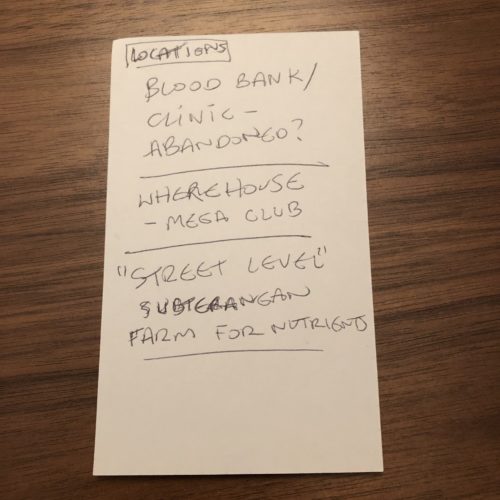 LOCATIONS
BLOOD BANK/
CLINIC -
ABANDONED?
WHEREHOUSE
- MEGA CLUB
"STREET LEVEL"
SUBTERANEAN
FARM FOR NUTRIENTS